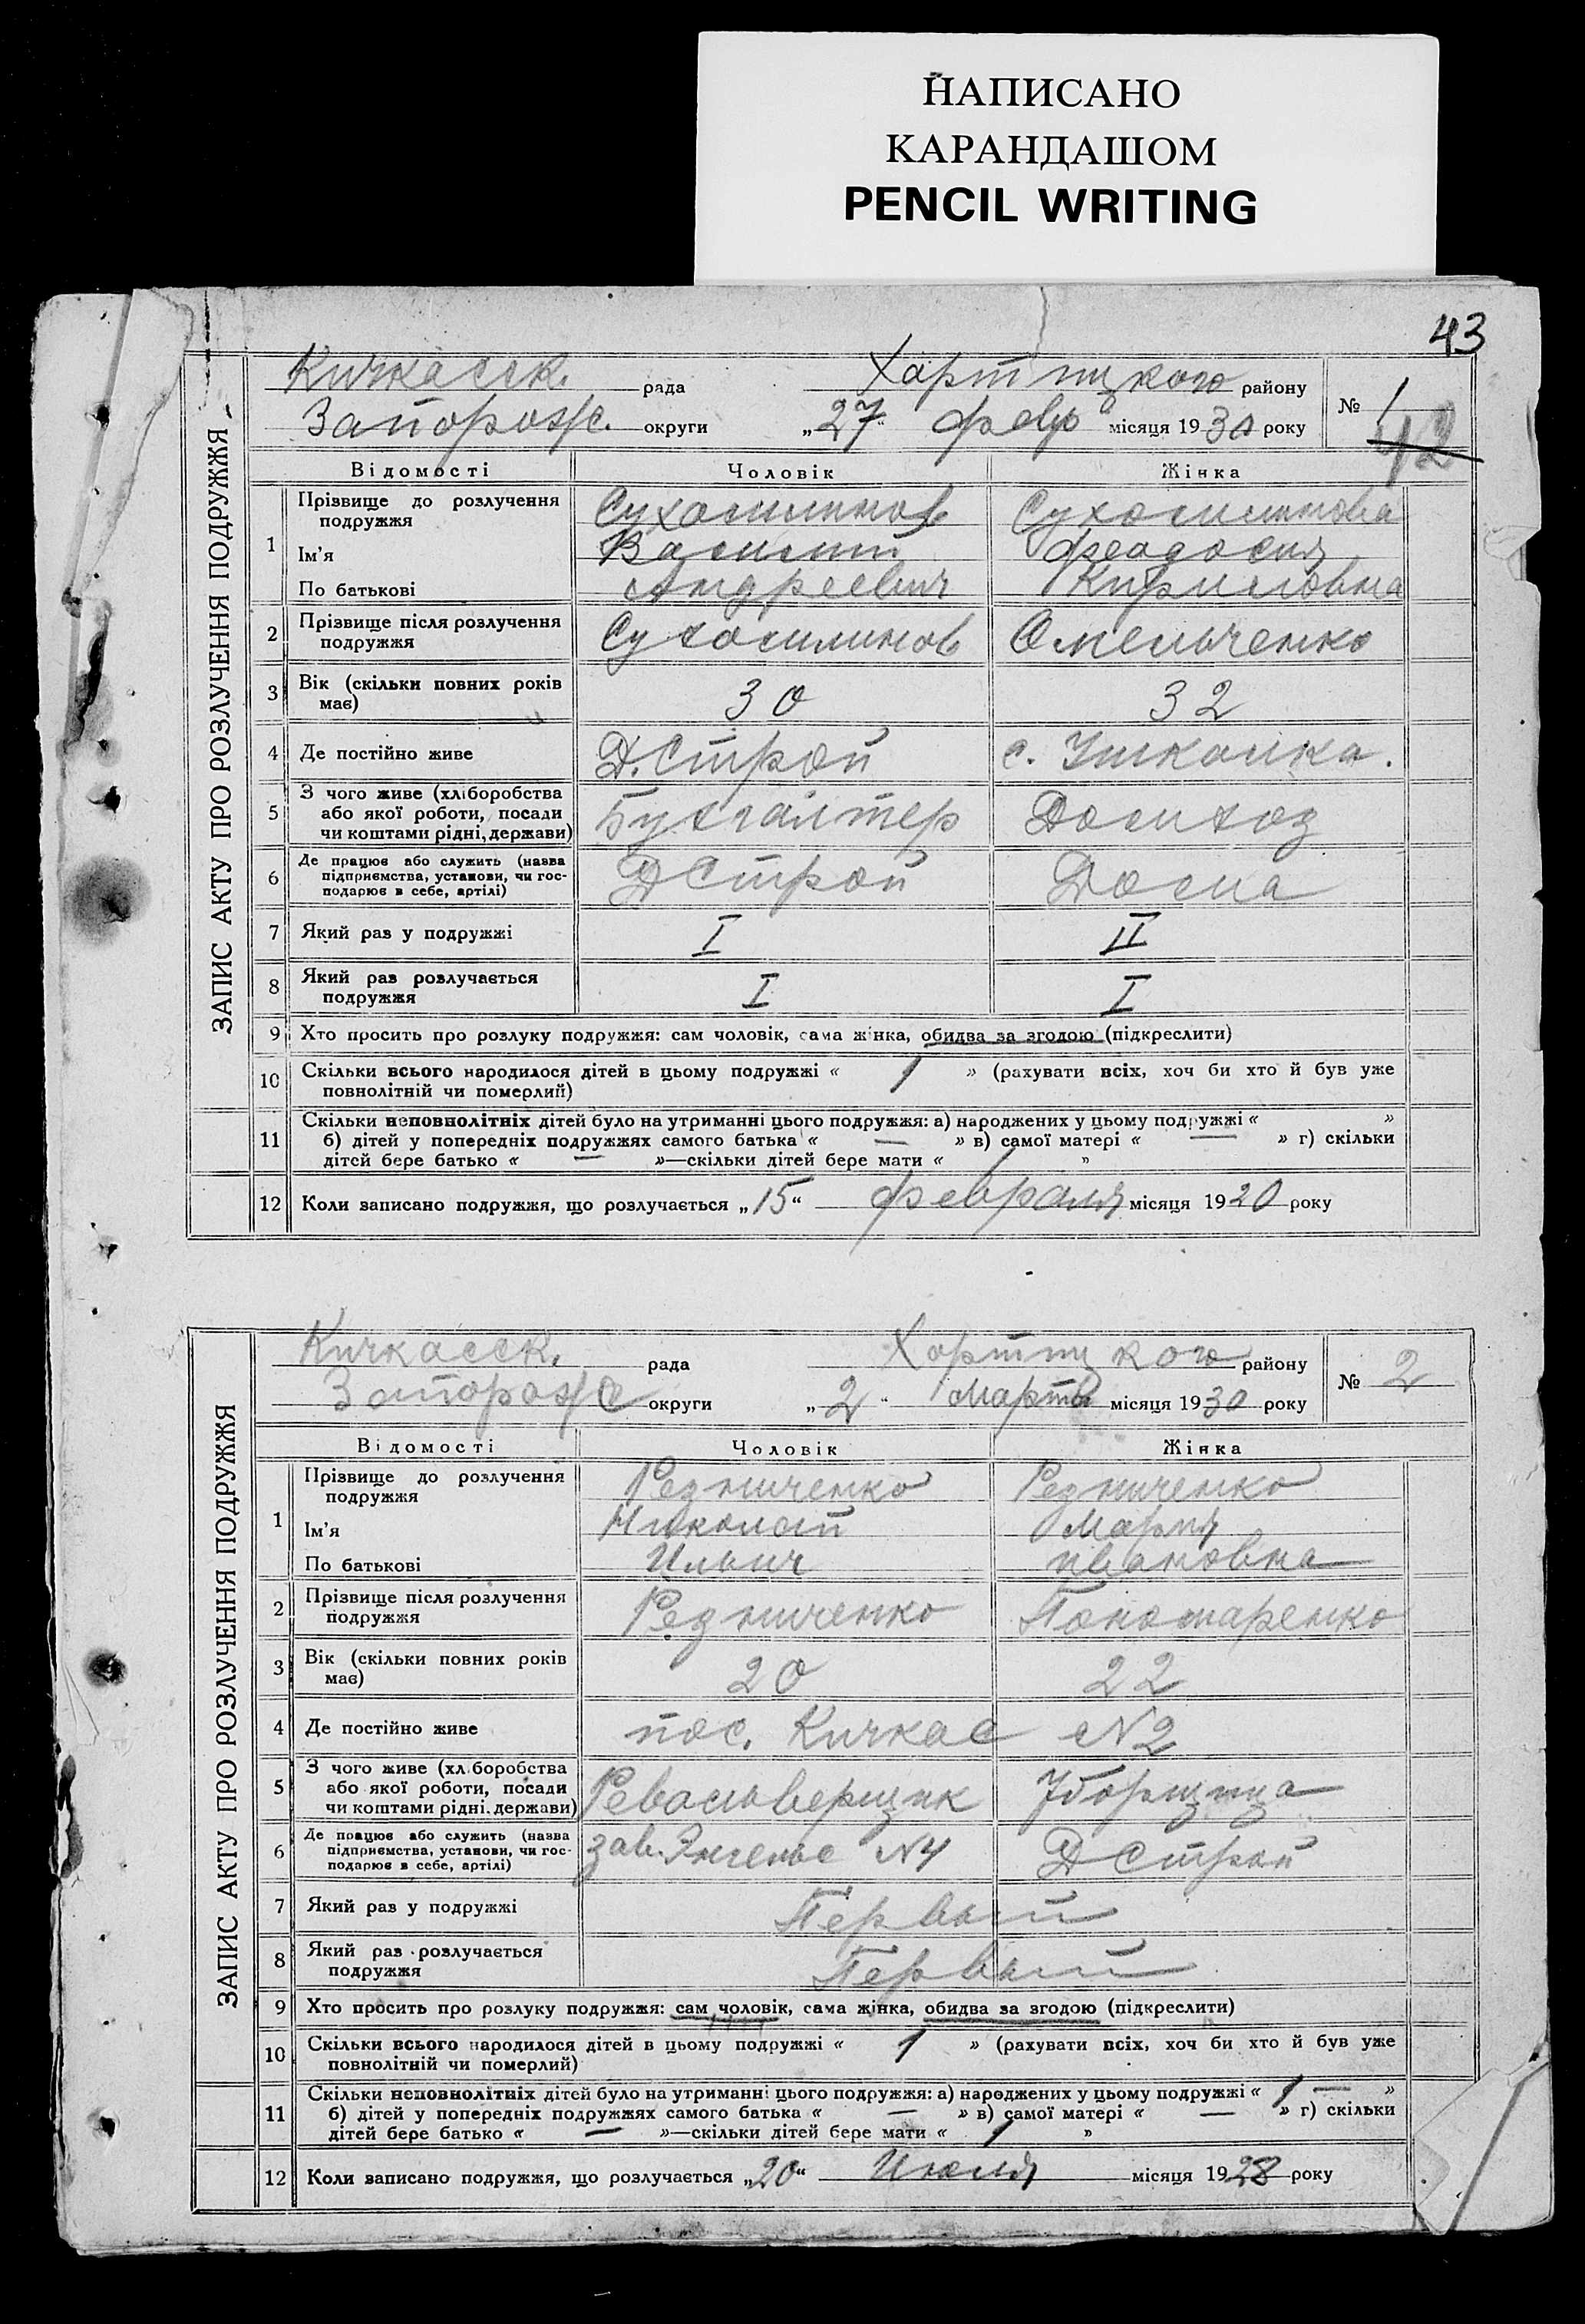 НАПИСАНО
КАРАНДАШОМ
PENCIL WRITING
43
ЗАПИС АКТУ ПРО РОЗЛУЧЕННЯ ПОДРУЖЖЯ
Кичкасск. рада Хортицкого району
№ 1
42
Запорож. округи „27“ февр місяця 1930 року
Відомості Чоловік Жінка
1 Прізвище до розлучення подружжя Сухосилинов Сухосилинова
Ім’я Василий Феодосия
По батькові Андреевич Кириловна
2 Прізвище після розлучення подружжя Сухосилинов Омельченко
3 Вік (скільки повних років має) 30 32
4 Де постійно живе Д.Строй с.
5 З чого живе (хліборобства або якої роботи, посади чи коштами рідні, держави) Бухгалтер Домохоз
6 Де працює або служить (назва підприємства, установи, чи господарює в себе, артілі) ДСтрой Дома
7 Який раз у подружжі I II
8 Який раз розлучається подружжя I I
9 Хто просить про розлуку подружжя: сам чоловік, сама жінка, обидва за згодою (підкреслити)
10 Скільки всього народилося дітей в цьому подружжі « 1 » (рахувати всіх, хоч би хто й був уже
повнолітній чи померлий)
11 Скільки неповнолітніх дітей було на утриманні цього подружжя: а) народжених у цьому подружжі « — »
б) дітей у попередніх подружжях самого батька « — » в) самої матері « » г) скільки
дітей бере батько « — »—скільки дітей бере мати « »
12 Коли записано подружжя, що розлучається „15“ февраля місяця 1920 року
ЗАПИС АКТУ ПРО РОЗЛУЧЕННЯ ПОДРУЖЖЯ
Кичкасск. рада Хортицкого району
№ 2
Запорож округи „2“ Марта місяця 1930 року
Відомості Чоловік Жінка
1 Прізвище до розлучення подружжя Редниченко Редниченко
Ім’я Николай Мария
По батькові Ильич Ивановна
2 Прізвище після розлучення подружжя Редниченко Пономаренко
3 Вік (скільки повних років має) 20 22
4 Де постійно живе пос. Кичкас №2
5 З чого живе (хліборобства або якої роботи, посади чи коштами рідні, держави) Револьверщик Уборщица
6 Де працює або служить (назва підприємства, установи, чи господарює в себе, артілі) зав. Энгельс №4 ДСтрой
7 Який раз у подружжі Первый
8 Який раз розлучається подружжя Первый
9 Хто просить про розлуку подружжя: сам чоловік, сама жінка, обидва за згодою (підкреслити)
10 Скільки всього народилося дітей в цьому подружжі « 1 » (рахувати всіх, хоч би хто й був уже
повнолітній чи померлий)
11 Скільки неповнолітніх дітей було на утриманні цього подружжя: а) народжених у цьому подружжі « 1 — »
б) дітей у попередніх подружжях самого батька « — » в) самої матері « — » г) скільки
дітей бере батько « — »—скільки дітей бере мати « 1 »
12 Коли записано подружжя, що розлучається „20“ Июля місяця 1928 року